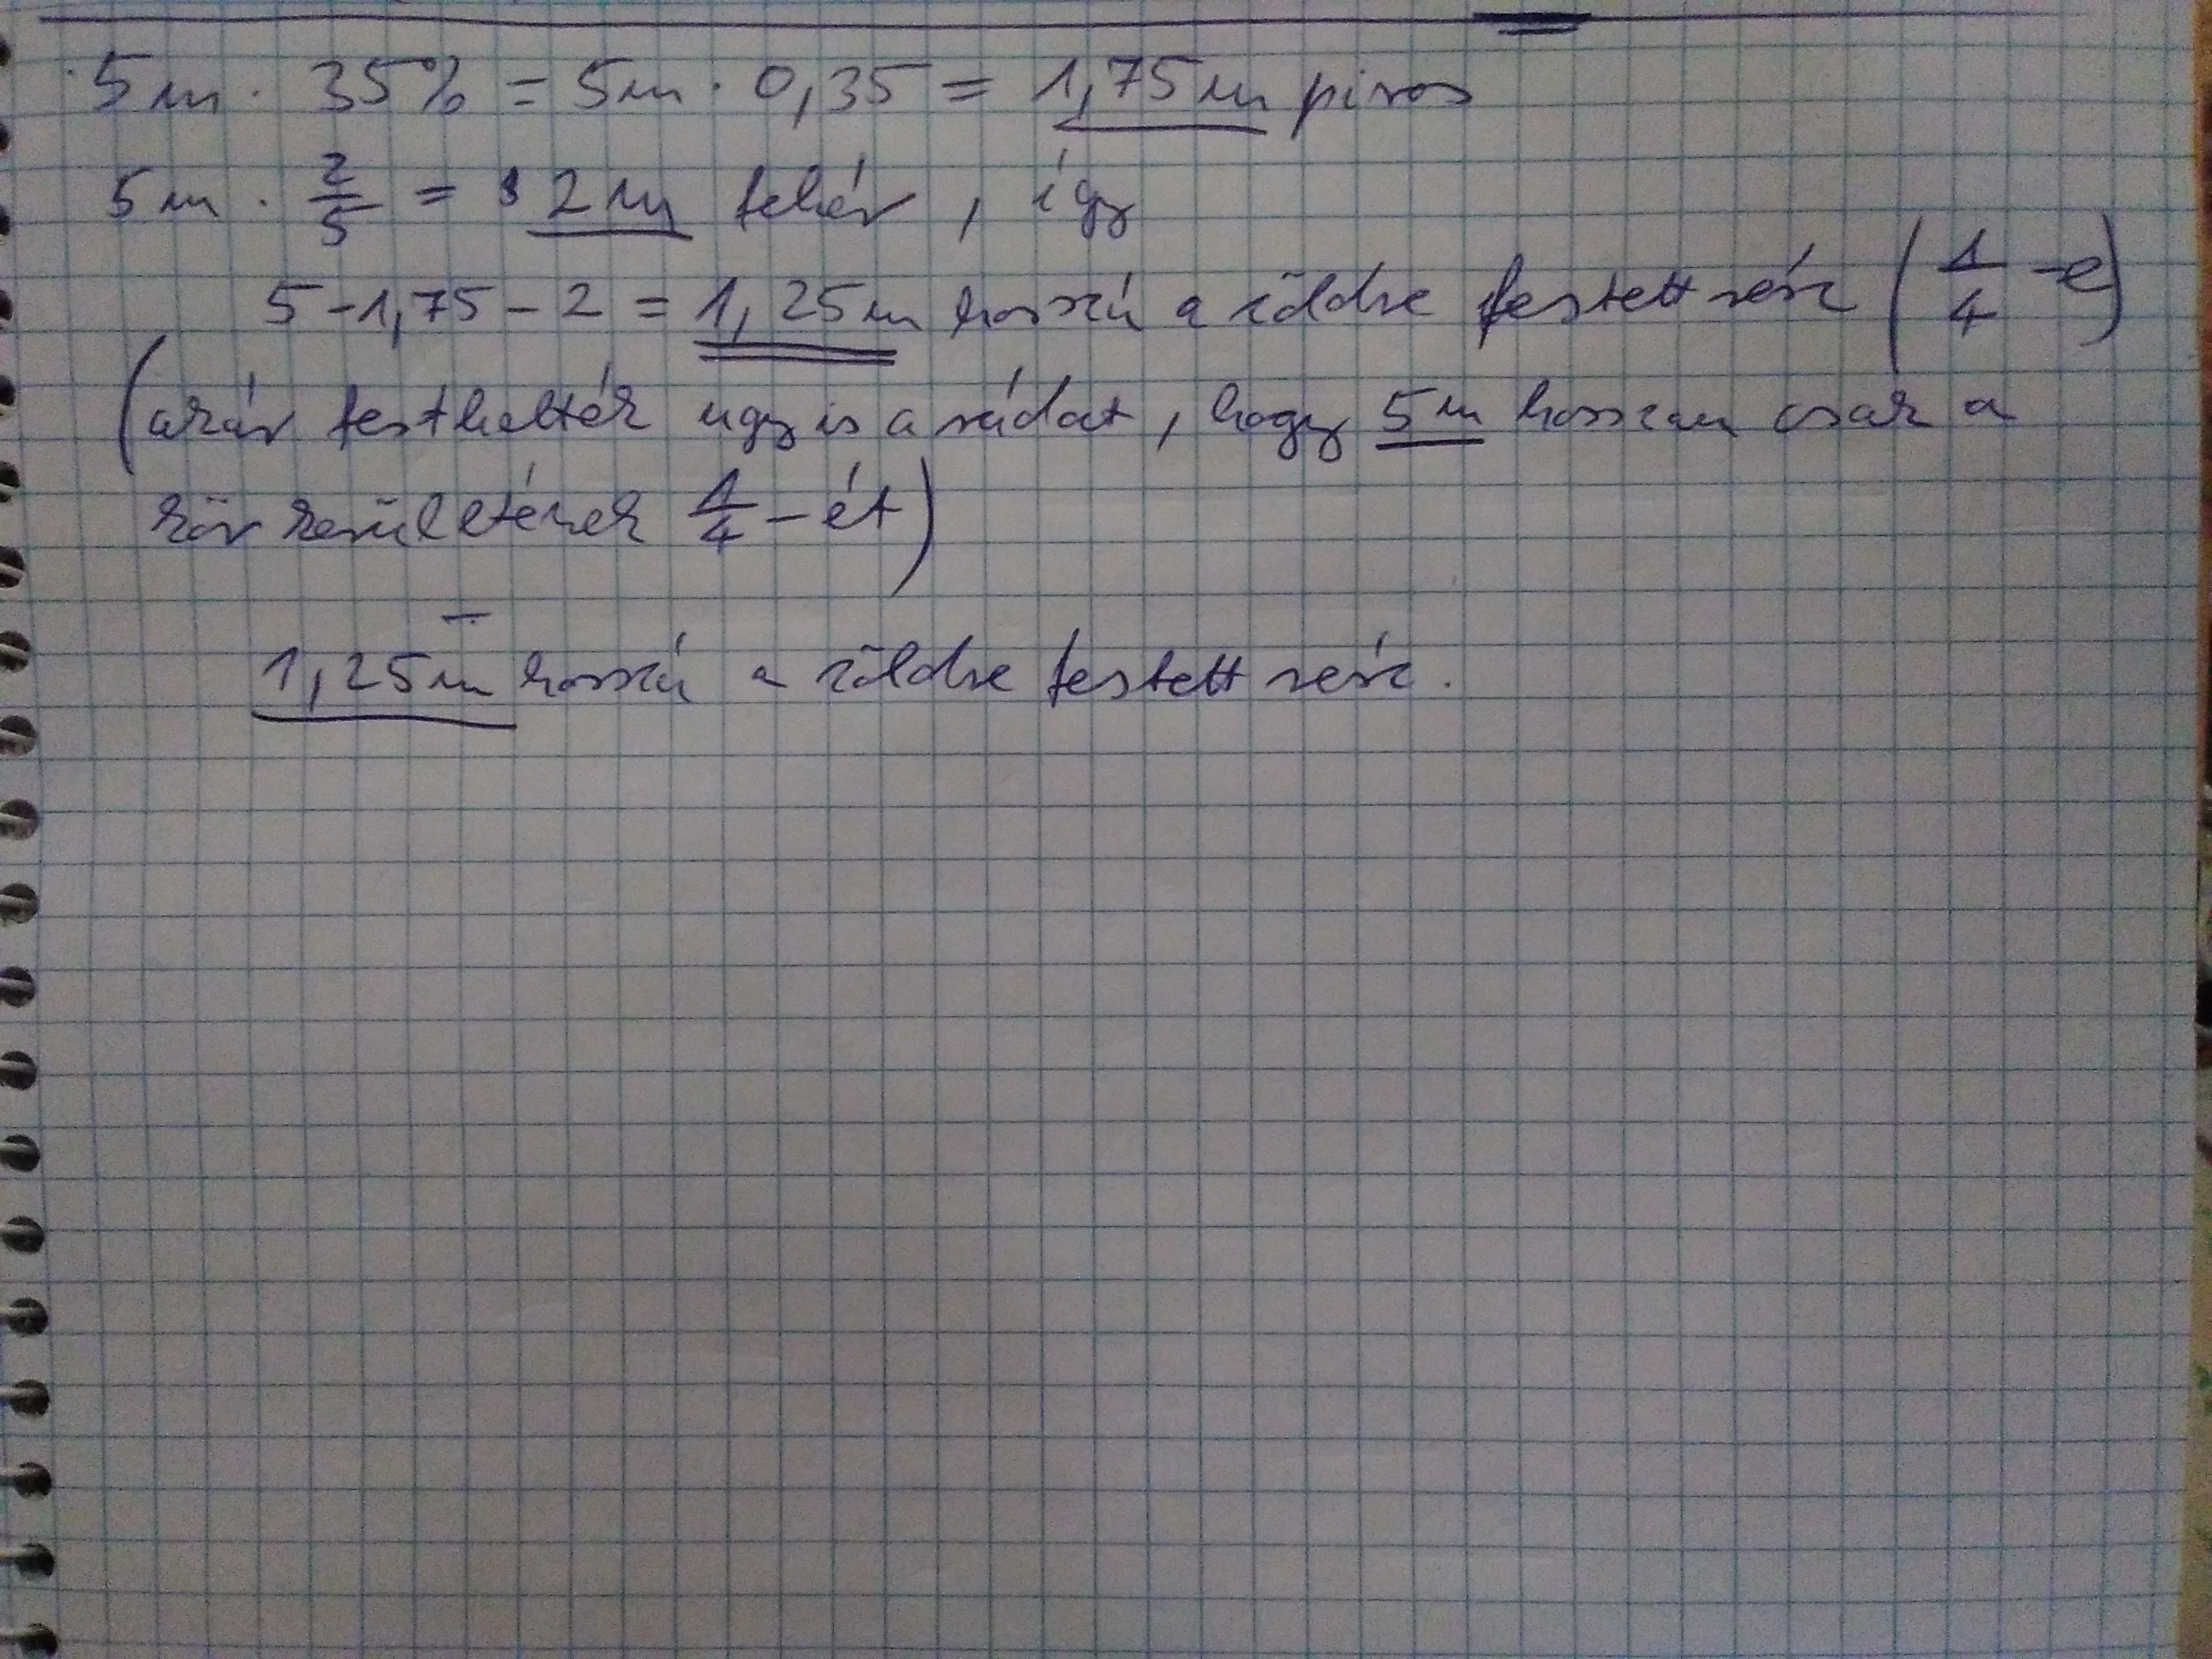 5m · 35% = 5m · 0,35 = 1,75m piros
5m · 2/5 = 2m fehér, így
5-1,75-2 = 1,25m hosszú a zöldre festett rész (1/4-e)
(akár festhették úgy is a rúdat, hogy 5m hosszan csak a
kör kerületének 1/4-ét)
1,25m hosszú a zöldre festett rész.